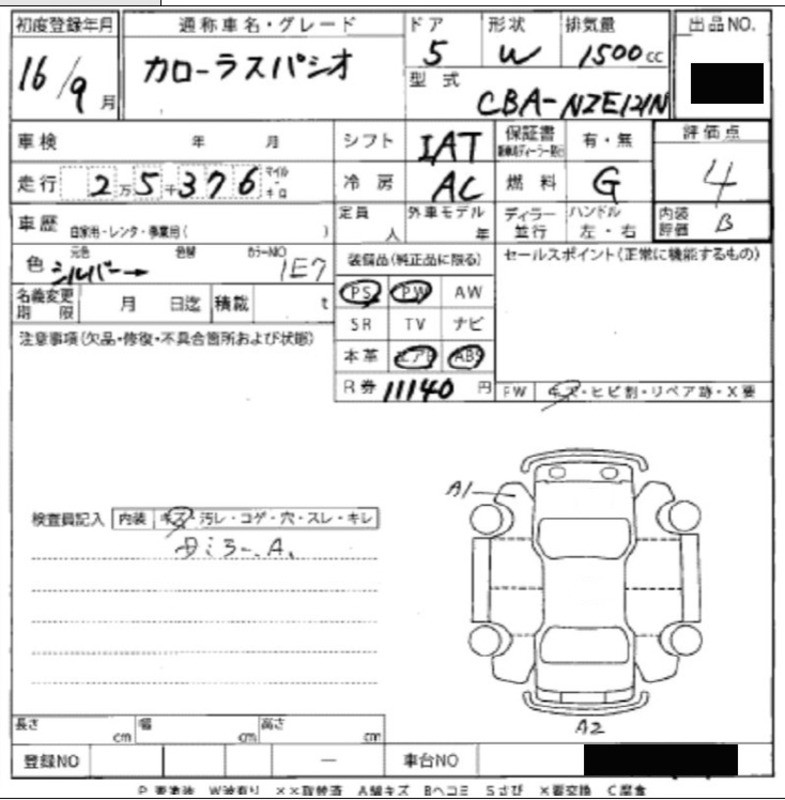 初度登録年月 通称車名・グレード ドア 形状 排気量 出品NO.
16/9月 カローラスパシオ 5 W 1500cc
型式 CBA-NZE121N
車検 年 月 シフト IAT 保証書 有・無 評価点
走行 2万5千376 マイル・キロ 冷房 AC 燃料 G 4
車歴 自家用・レンタ・事業用( ) 定員 人 外車モデル 年 ディラー並行 ハンドル 左・右 内装評価 B
色 元色 シルバー 色替 カラーNO 1E7 装備品(純正品に限る) セールスポイント(正常に機能するもの)
名義変更期限 月 日迄 積載 t PS PW AW
注意事項(欠品・修復・不具合箇所および状態) SR TV ナビ
本革 エアB ABS
R券 11140円 FW キズ・ヒビ割・リペア跡・X要
A1
検査員記入 内装 キズ・汚レ・コゲ・穴・スレ・キレ
A2
長さ cm 幅 cm 高さ cm
登録NO 車台NO
P 要塗装 W波有り ××取替済 A線キズ Bヘコミ Sさび X要交換 C腐食